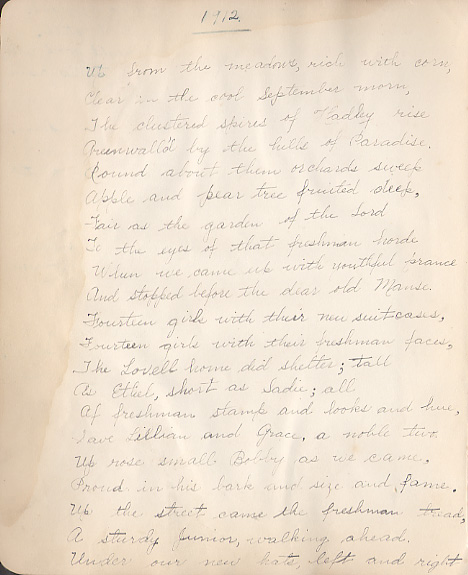 1912.
Up from the meadows, rich with corn,
Clear in the cool September morn,
The clustered spires of Hadley rise
Greenwall'd by the hills of Paradise.
Round about them orchards sweep
Apple and pear tree fruited deep,
Fair as the garden of the Lord
To the eyes of that freshman horde
When we came up with youthful prance
And stopped before the dear old Manse.
Fourteen girls with their new suitcases,
Fourteen girls with their freshman faces,
The Lovell home did shelter; tall
As Ethel, short as Sadie; all
Of freshman stamp and looks and hue,
Save Lillian and Grace, a noble two.
Up rose small Bobby as we came,
Proud in his bark and size and fame.
Up the street came the freshman tread,
A sturdy Junior, walking ahead.
Under our new hats, left and right